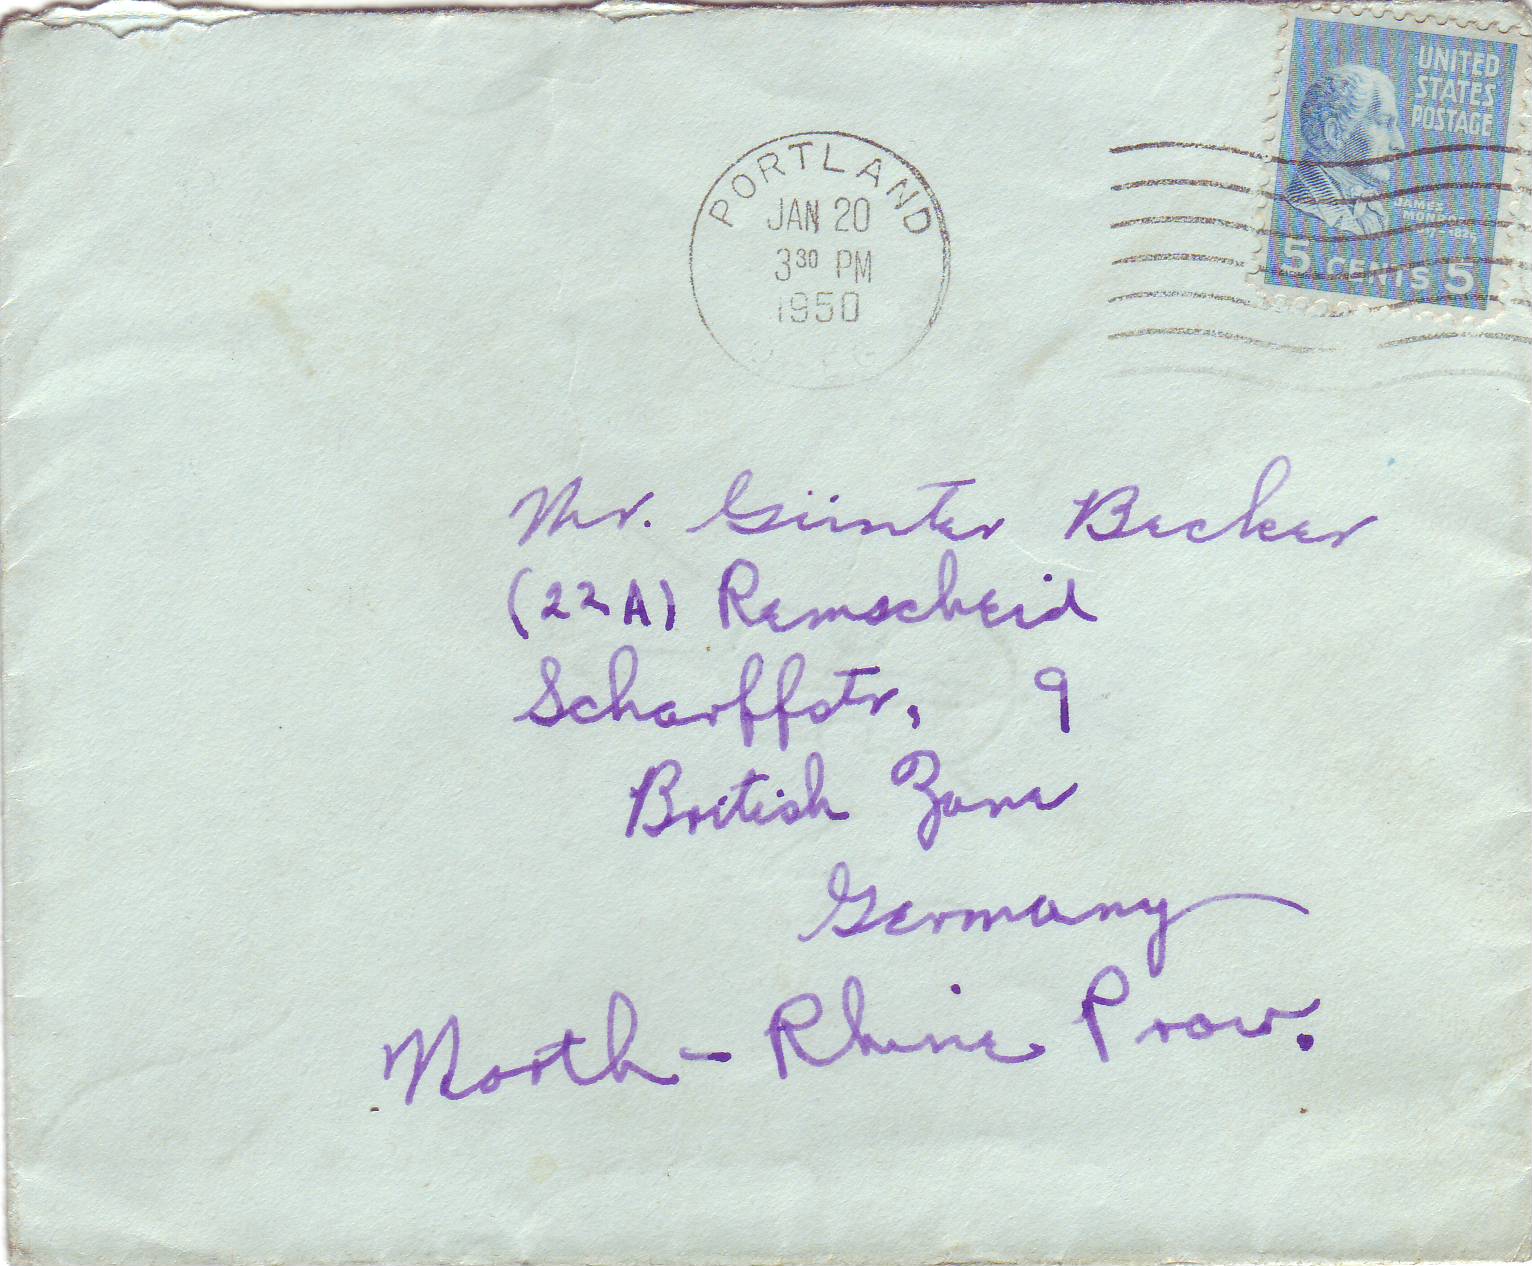 PORTLAND
JAN 20
3 30 PM
1950
UNITED
STATES
POSTAGE
JAMES
5 CENTS 5
Mr. Günter Becker
(22A) Remscheid
Scharffstr. 9
British Zone
Germany
North-Rhine Prov.